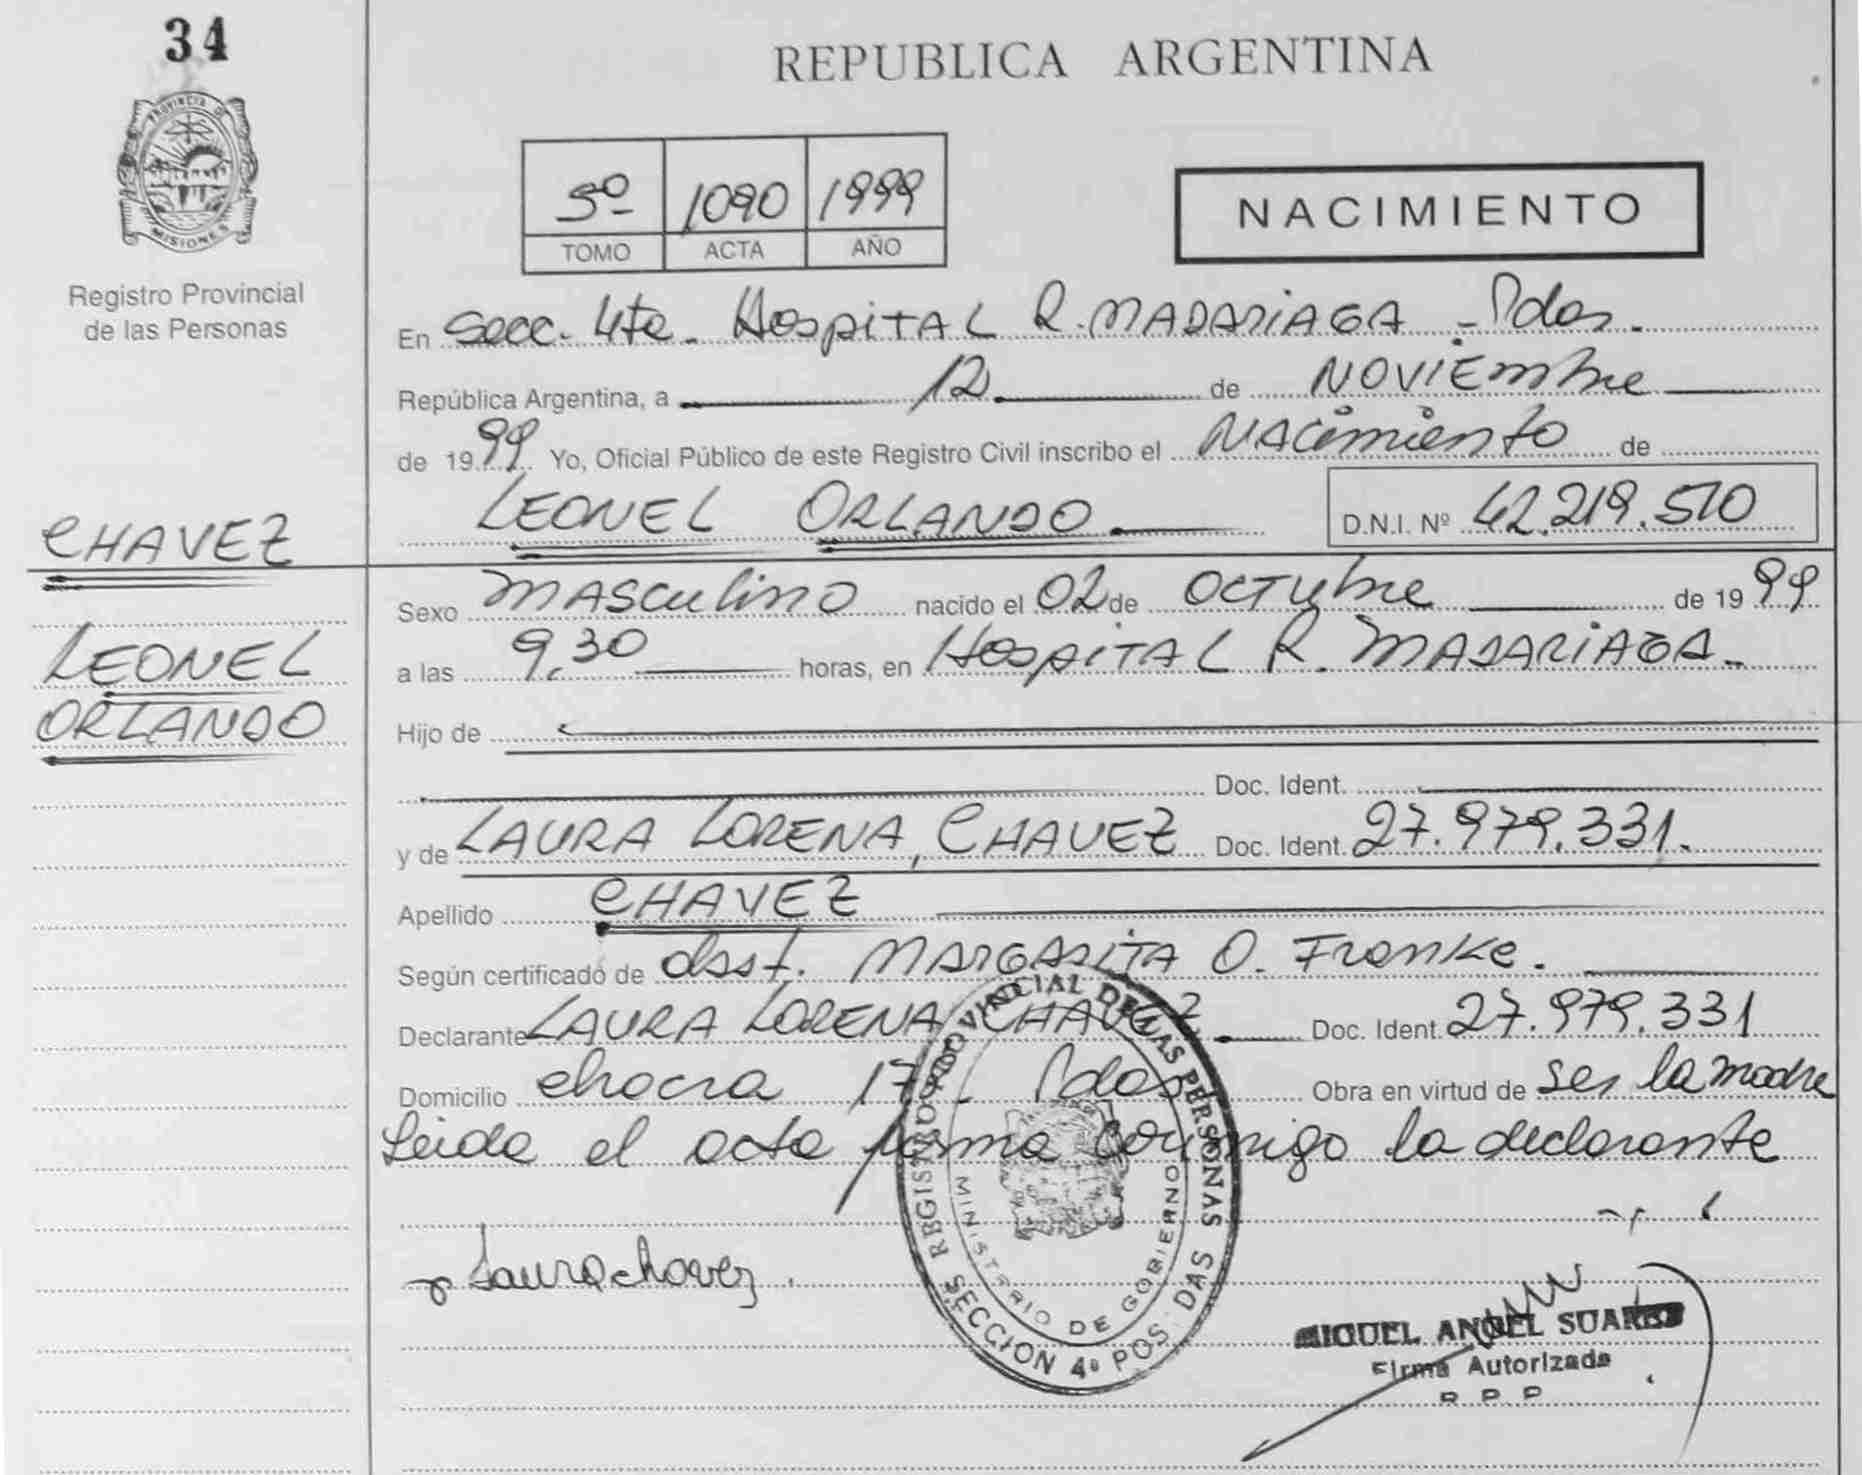 34
PROVINCIA DE
MISIONES
Registro Provincial
de las Personas
CHAVEZ
LEONEL
ORLANDO
REPUBLICA ARGENTINA
5º 1090 1999
TOMO ACTA AÑO
NACIMIENTO
En Secc. 4ta. Hospital R. MADARIAGA - Pdas.
República Argentina, a 12 de NOVIEmbre
de 1999 Yo, Oficial Público de este Registro Civil inscribo el NAcimiento de
LEONEL ORLANDO D.N.I. Nº 42.219.510
Sexo MASculino nacido el 02 de OCTubre de 1999
a las 9,30 horas, en HospiTAL R. MADARiAGA.
Hijo de
Doc. Ident.
y de LAURA LORENA, CHAVEZ Doc. Ident. 27.979.331.
Apellido CHAVEZ
Según certificado de obst. MARGARITA O. Franke.
Declarante LAURA LORENA CHAVEZ Doc. Ident. 27.979.331
Domicilio chacra 17 - Pdas Obra en virtud de ser la madre
Leida el acta firma conmigo la declarante
Laura chavez.
REGISTRO PROVINCIAL DE LAS PERSONAS
MINISTERIO DE GOBIERNO
SECCION 4º POSADAS
MIGUEL ANGEL SUAREZ
Firma Autorizada
R. P. P.